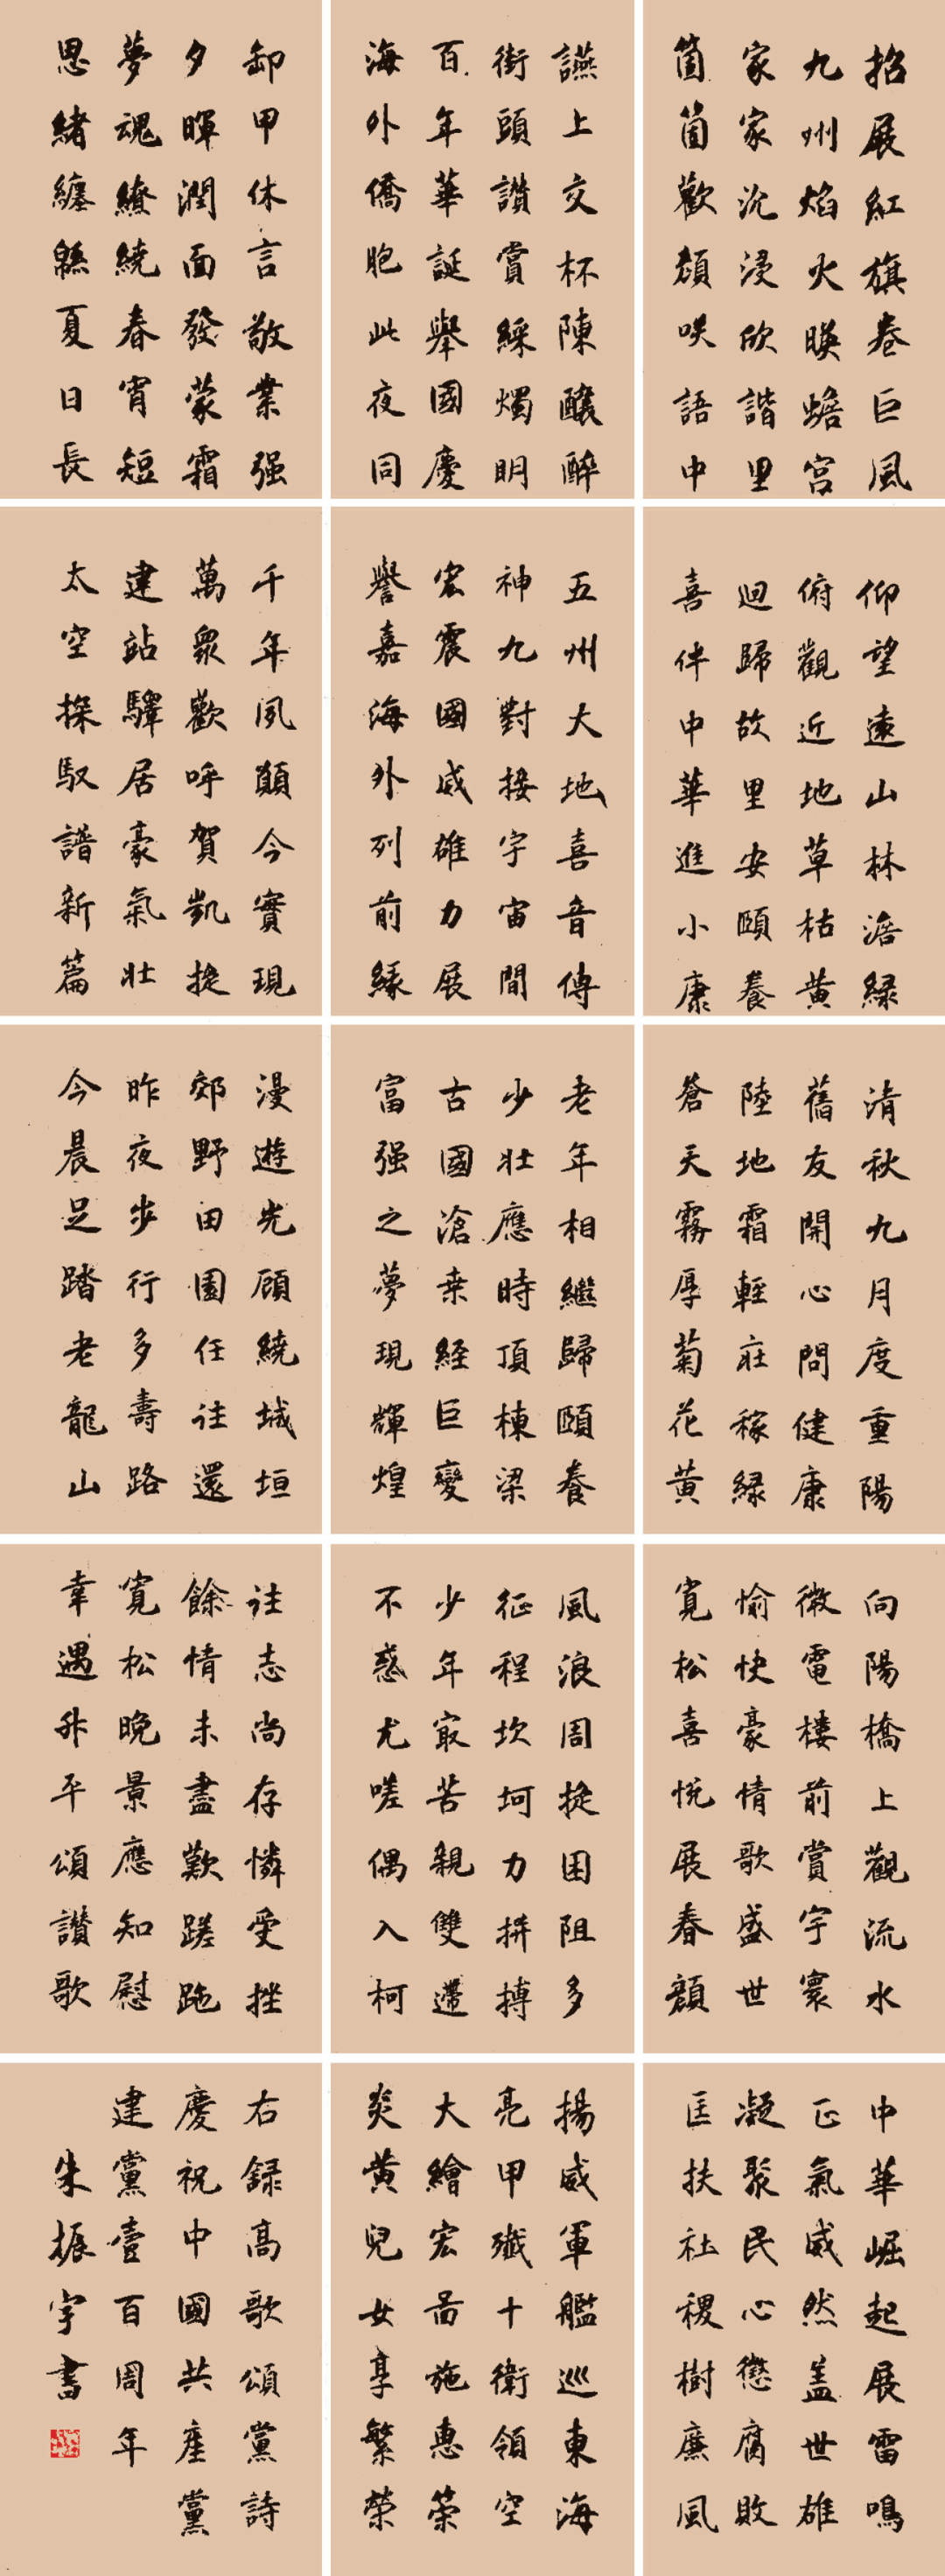 招展紅旗卷巨風
九州焰火暎蟾宫
家家沉浸欣諧里
箇箇歡顔咲語中
讌上交杯陳釀醉
街頭讃賞綵燭明
百年華誕舉國慶
海外僑胞此夜同
卸甲休言敬業强
夕暉潤面發蒙霜
夢魂繚繞春宵短
思緒纏緜夏日長
仰望遠山林澹緑
俯觀近地草枯黄
迴歸故里安頤養
喜伴中華進小康
五州大地喜音傳
神九對接宇宙間
宏震國威雄力展
譽嘉海外列前緣
千年夙願今實現
萬衆歡呼賀凱旋
建站驛居豪氣壯
太空探馭譜新篇
清秋九月度重陽
舊友開心問健康
陸地霜輕莊稼緑
蒼天霧厚菊花黄
老年相繼歸頤養
少壯應時頂棟梁
古國滄桒經巨變
富强之夢現輝煌
漫遊光顧繞城垣
郊野田園任往還
昨夜步行多壽路
今晨足踏老龍山
向陽橋上觀流水
微電樓前賞宇寰
愉快豪情歌盛世
寬松喜悦展春顔
風浪周旋困阻多
征程坎坷力拚搏
少年㝡苦親雙
不惑尤嗟偶入柯
往志尚存憐受挫
餘情未盡歎蹉跎
寬松晚景應知慰
幸遇升平頌讃歌
中華崛起展雷鳴
正氣威然盖世雄
凝聚民心懲腐敗
匡扶社稷樹廉風
揚威軍艦巡東海
亮甲殲十衛領空
大繪宏啚施惠策
炎黄兒女享繁榮
右録高歌頌黨詩
慶祝中國共産黨
建黨壹百周年
朱振宇書